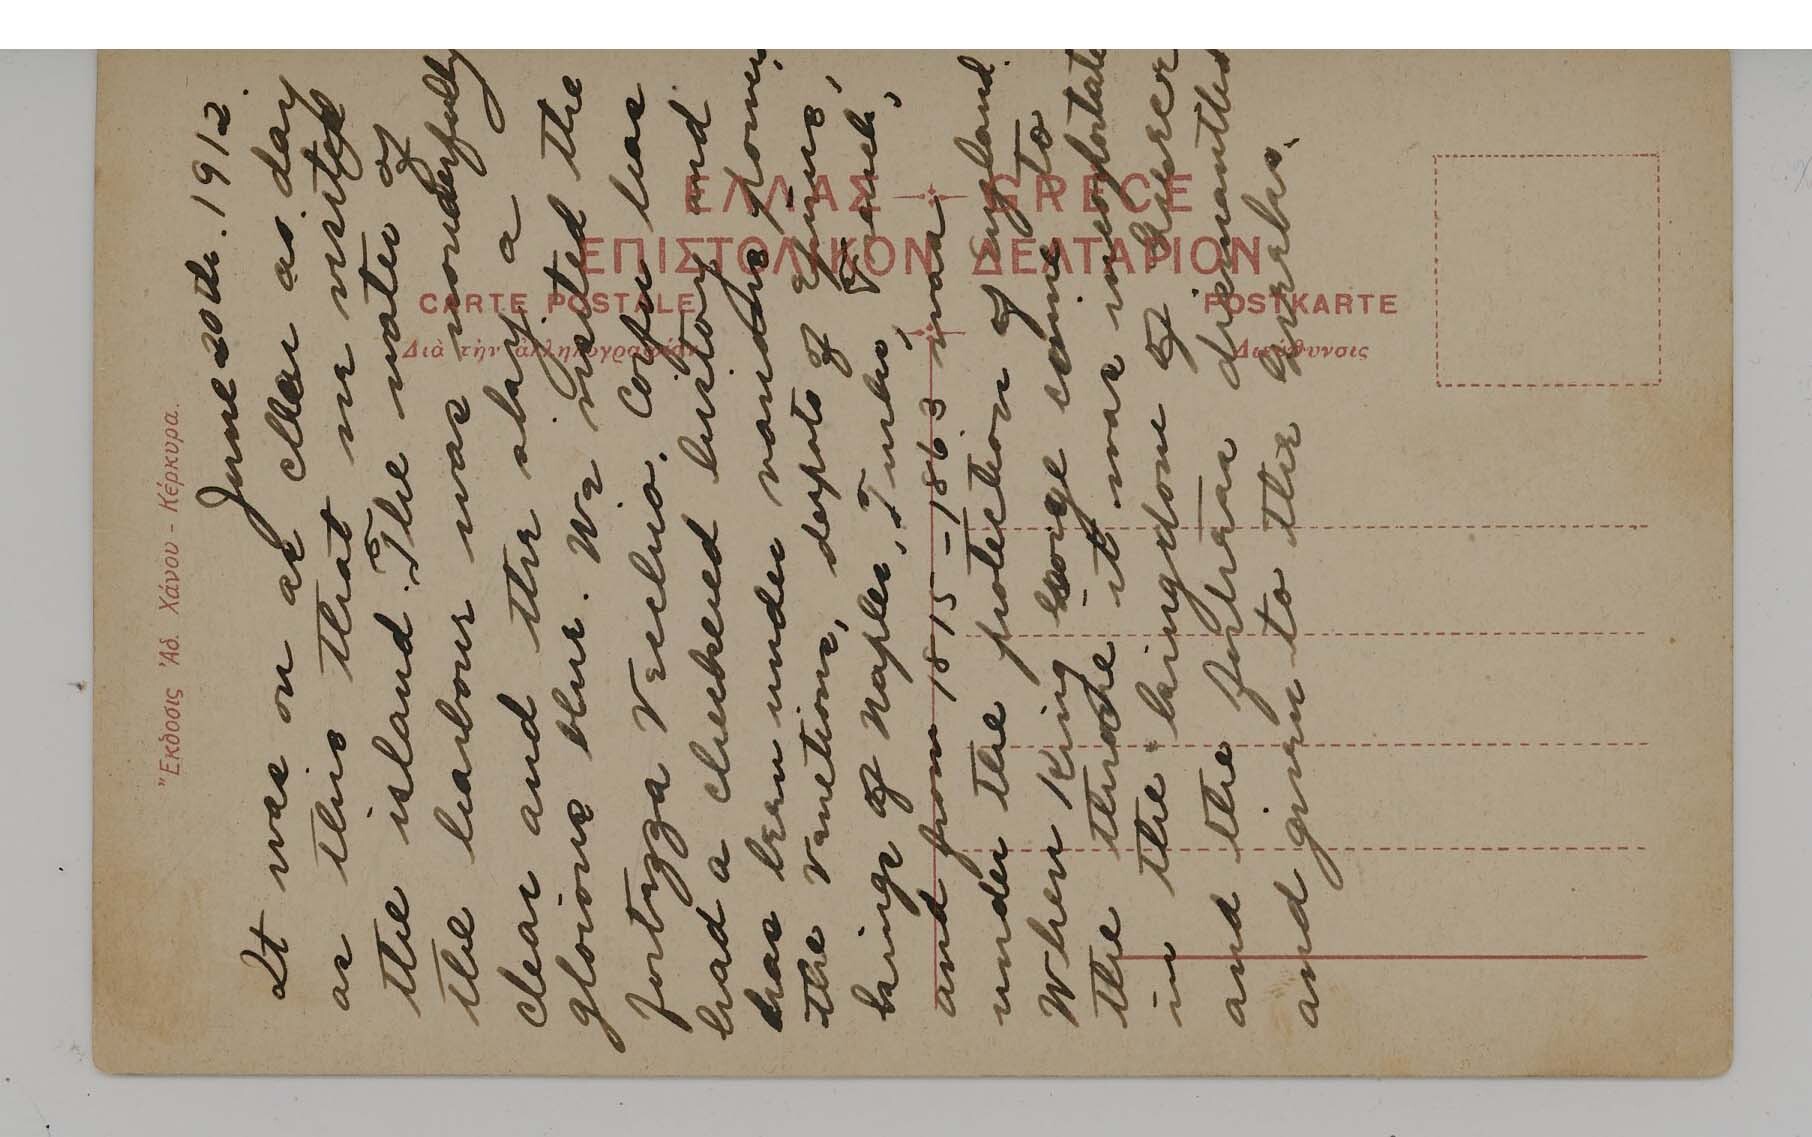 ΕΛΛΑΣ GRECE
ΕΠΙΣΤΟΛΙΚΟΝ ΔΕΛΤΑΡΙΟΝ
CARTE POSTALE POSTKARTE
Διὰ τὴν ἀλληλογραφίαν Διεύθυνσις
Ἔκδοσις Ἀδ. Χάνου - Κέρκυρα.
June 20th. 1912.
It was on as clear as day
as this that we visited
the island. The water of
the harbour was wonderfully
clear and the sky a
glorious blue. We visited the
fortezza Vecchia. Corfu has
had a checkered history and
has been under various powers,
the Venetians, despots of Epirus,
kings of Naples, Turks, French,
and from 1815 - 1863 was
under the protection of England.
When King George came to
the throne it was incorporated
in the kingdom of Greece
and the fortress dismantled
and given to the Greeks.